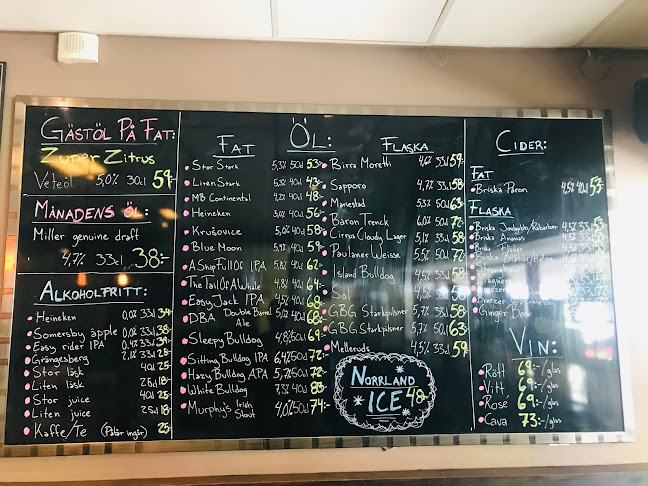 GÄSTÖL PÅ FAT:
Zuper Zitrus
Veteöl 5,0% 30cl 59:-
MÅNADENS ÖL:
Miller genuine draft
4,7% 33cl 38:-
ALKOHOLFRITT:
Heineken 0,0% 33cl 34:-
Somersby äpple 0,0% 33cl 38:-
Easy rider IPA 0,4% 33cl 39:-
Grängesberg 2,1% 33cl 25:-
Stor läsk 40cl 25:-
Liten läsk 25cl 18:-
Stor juice 40cl 25:-
Liten juice 25cl 18:-
Kaffe/Te (Påtår ingår) 25:-
ÖL:
FAT
Stor Stark 5,3% 50cl 53:-
Liten Stark 5,3% 40cl 43:-
MB Continental 4,2% 40cl 48:-
Heineken 40cl 56:-
Krušovice 5,0% 40cl 58:-
Blue Moon 40cl 59:-
A Ship Full Of IPA 5,8% 40cl 62:-
The Tail Of A Whale 4,8% 40cl 64:-
Easy Jack IPA 4,5% 40cl 68:-
DBA Double Barrel 40cl 68:-
Ale
Sleepy Bulldog 4,8% 50cl 69:-
Sitting Bulldog IPA 6,4% 50cl 72:-
Hazy Bulldog APA 5,7% 50cl 72:-
White Bulldog 7,3% 40cl 83:-
Murphy's Irish 4,0% 50cl 74:-
Stout
FLASKA
Birra Moretti 4,6% 33cl 59:-
Sapporo 4,7% 33cl 58:-
Mariestad 5,3% 50cl 63:-
Baron Trenck 6,0% 50cl 72:-
Cirrus Cloudy Lager 5,1% 33cl 58:-
Paulaner Weisse 5,5% 50cl 72:-
Island Bulldog 4,5% 33cl 58:-
Sol 4,5% 33cl 58:-
GBG Starkpilsner 5,7% 33cl 58:-
GBG Starkpilsner 5,7% 50cl 63:-
Melleruds 4,5% 33cl 59:-
NORRLAND
ICE 48:-
CIDER:
FAT
Briska Päron 4,5% 40cl 53:-
FLASKA
Briska Jordgubb/Rabarber 4,5% 33cl 53:-
Briska Ananas
Briska
Briska
Ginger Beer
VIN:
Rött 69:-/glas
Vitt 69:-/glas
Rosé 69:-/glas
Cava 73:-/glas